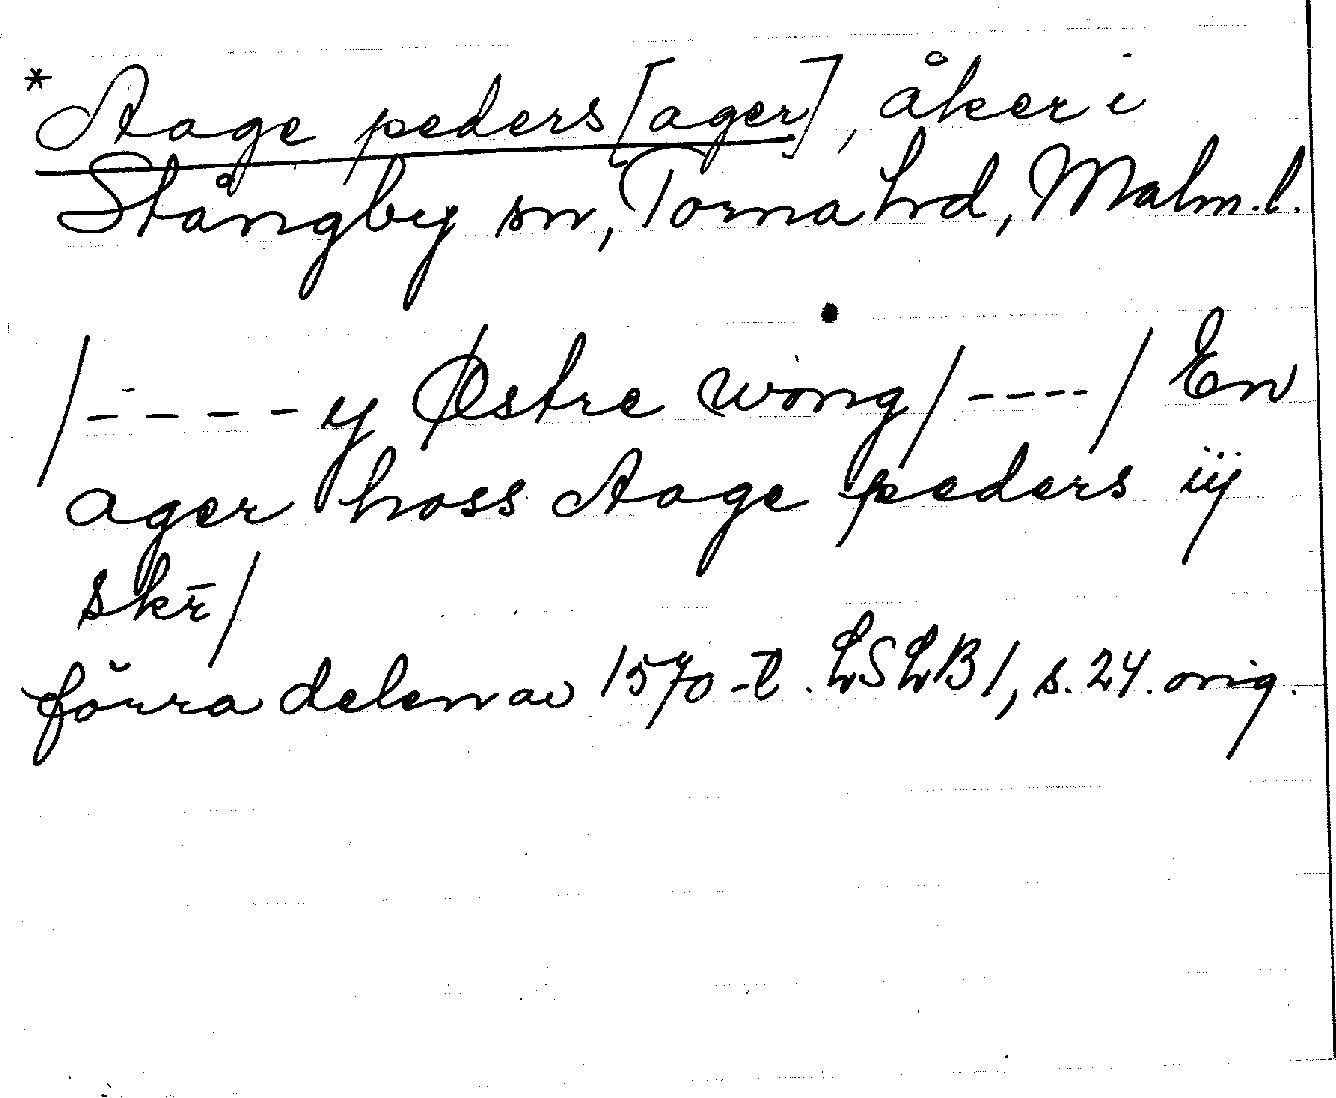 *Aage peders [ager], åker i
Stångby sn, Torna hrd, Malm. l.
/- - - - y Østre wong/ - - - -/ En
ager hoss Aage peders iij
skr̄/
förra delen av 1570-t. LSLB 1, s. 24. orig.